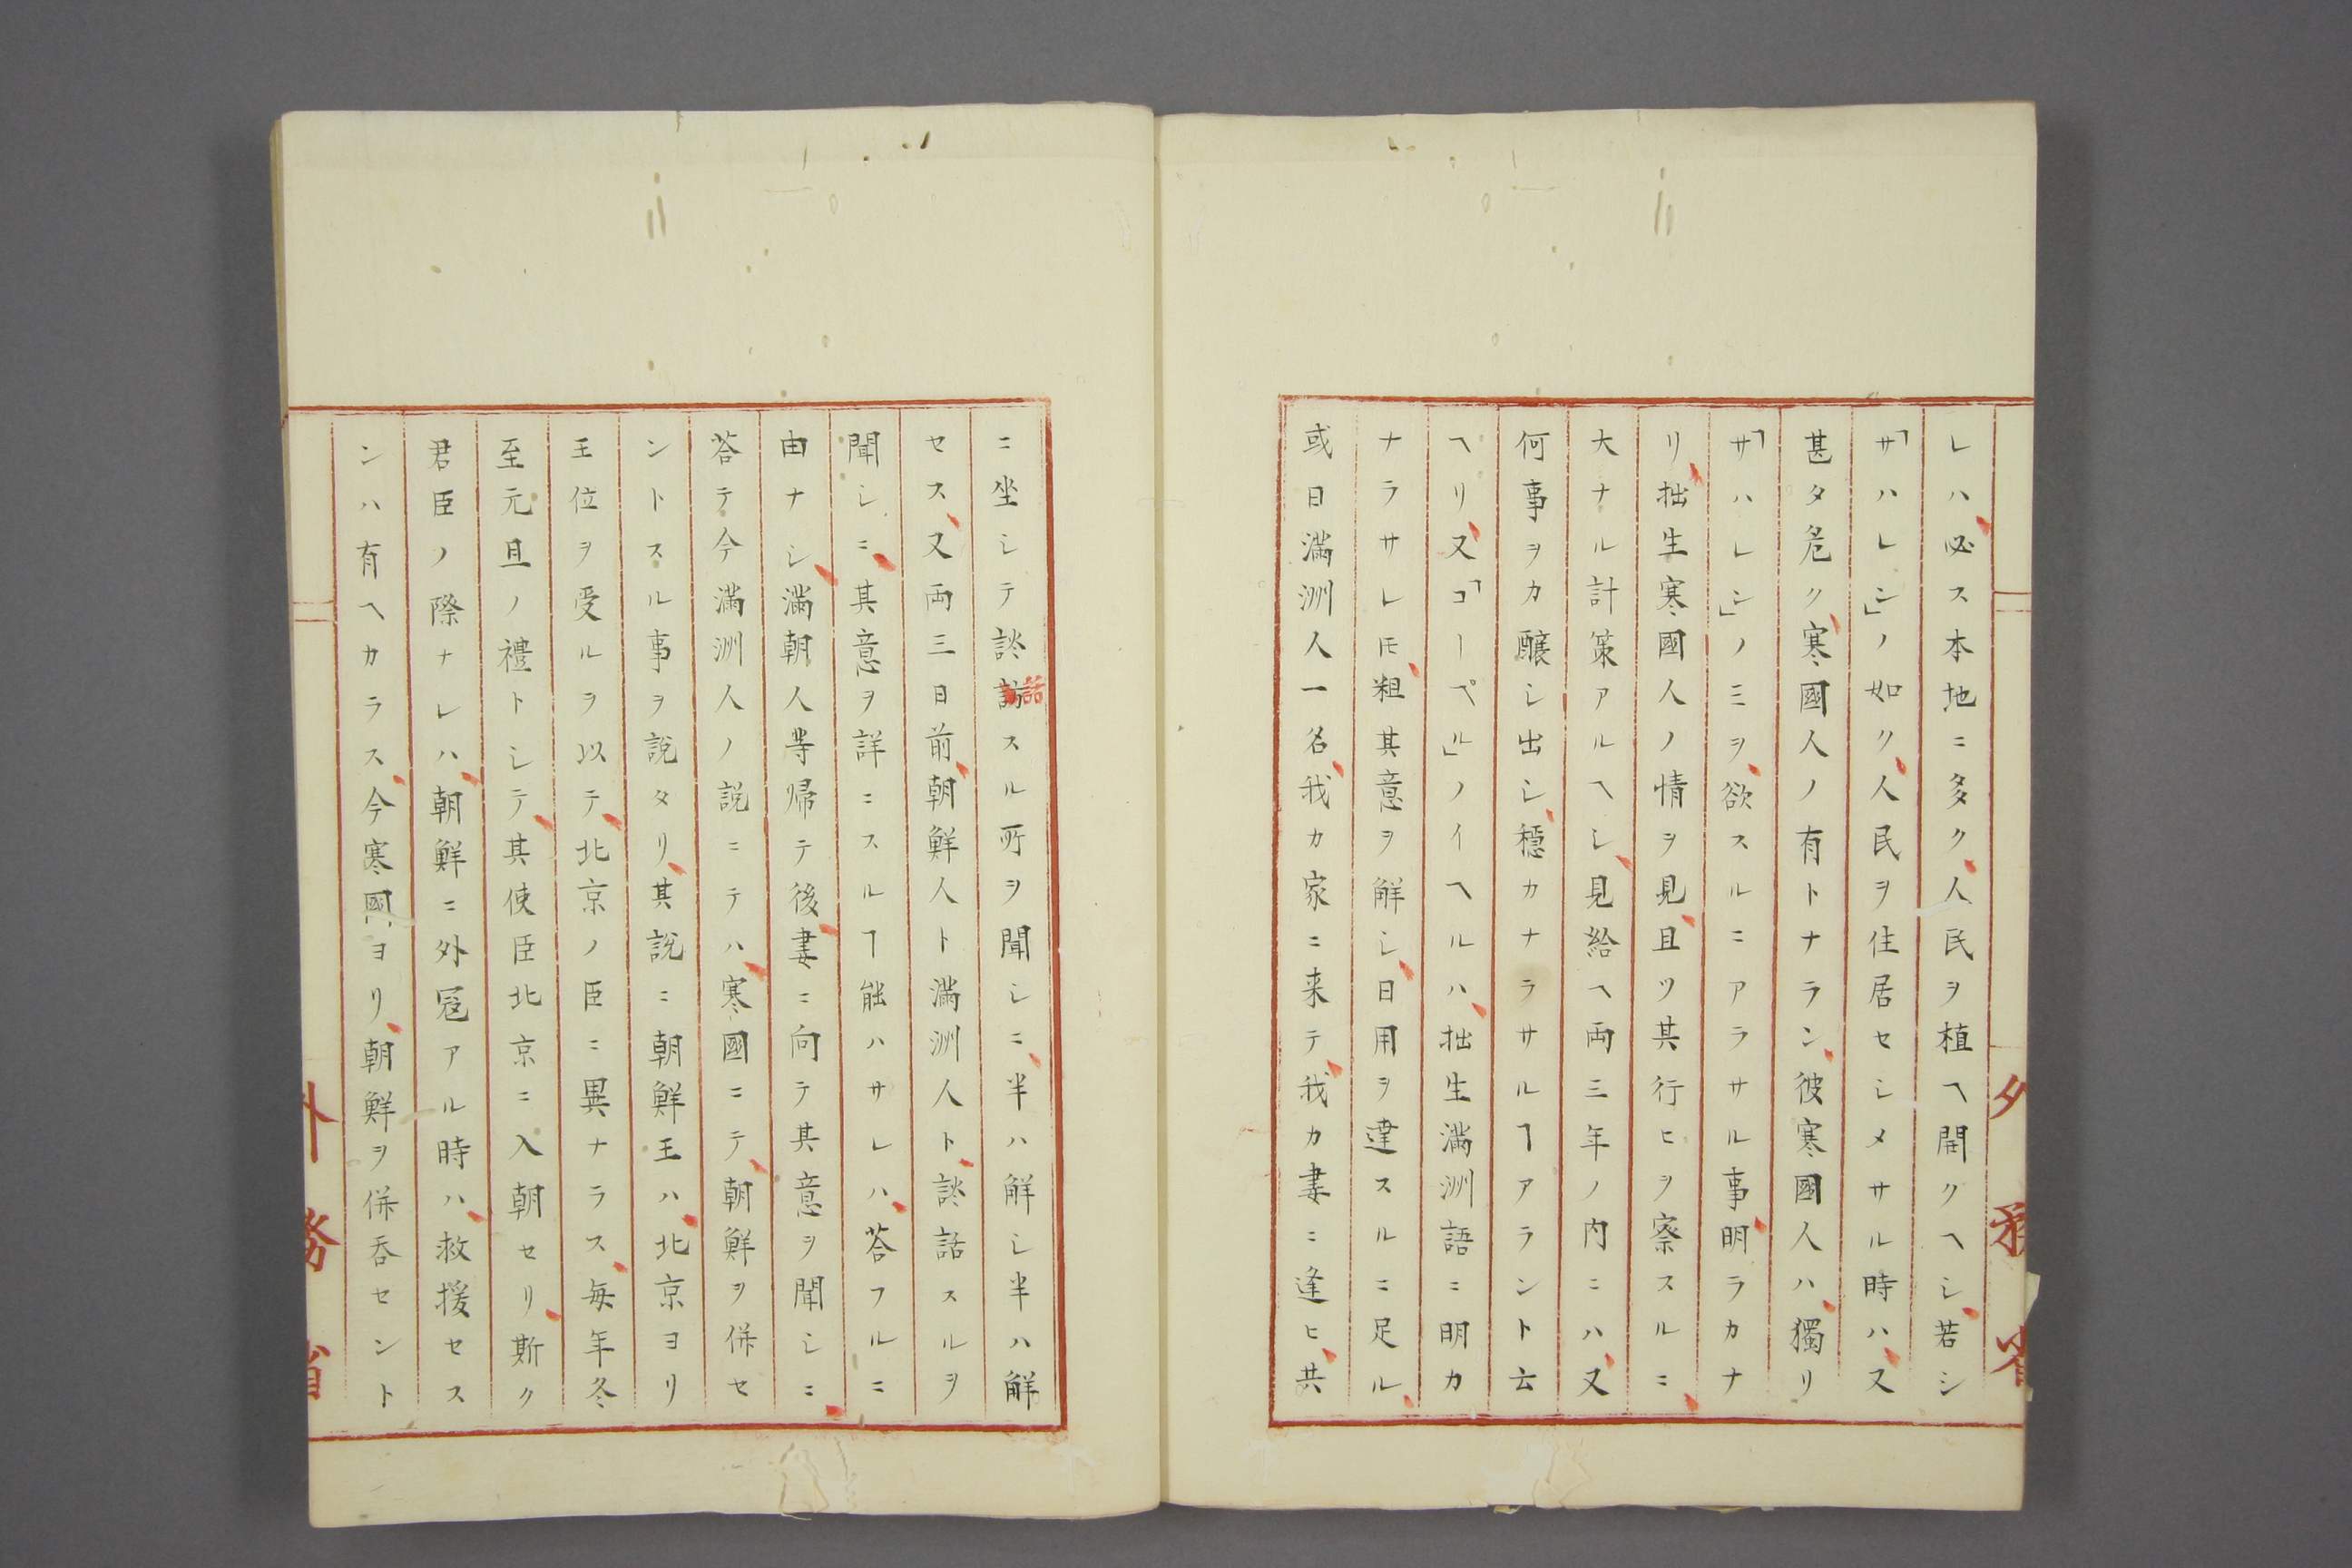 レハ、必ス本地ニ多ク、人民ヲ植ヘ開クヘシ、若シ
「サハレン」ノ如ク、人民ヲ住居セシメサル時ハ、又
甚タ危ク、寒國人ノ有トナラン、彼寒國人ハ、獨リ
「サハレン」ノミヲ、欲スルニアラサル事、明ラカナ
リ、拙生寒國人ノ情ヲ見、且ツ其行ヒヲ察スルニ、
大ナル計策アルヘシ、見給ヘ両三年ノ内ニハ、又
何事ヲカ醸シ出シ、穏カナラサルヿアラント云
ヘリ、又「コーペル」ノイヘルハ、拙生満洲語ニ明カ
ナラサレ𪜈、粗其意ヲ解シ、日用ヲ達スルニ足ル、
或日満洲人一名、我カ家ニ来テ、我カ妻ニ逢ヒ、共
ニ坐シテ談話スル所ヲ聞シニ、半ハ解シ半ハ解
セス、又両三日前、朝鮮人ト満洲人ト、談話スルヲ
聞シニ、其意ヲ詳ニスルヿ能ハサレハ、答フルニ
由ナシ、満朝人等帰テ後、妻ニ向テ其意ヲ聞シニ、
答テ今満洲人ノ説ニテハ、寒國ニテ、朝鮮ヲ併セ
ントスル事ヲ説タリ、其説ニ朝鮮王ハ、北京ヨリ
王位ヲ受ルヲ以テ、北京ノ臣ニ異ナラス、毎年冬
至元旦ノ禮トシテ、其使臣北京ニ入朝セリ、斯ク
君臣ノ際ナレハ、朝鮮ニ外冦アル時ハ、救援セス
ンハ有ヘカラス、今寒國ヨリ、朝鮮ヲ併呑セント
外務省
外務省